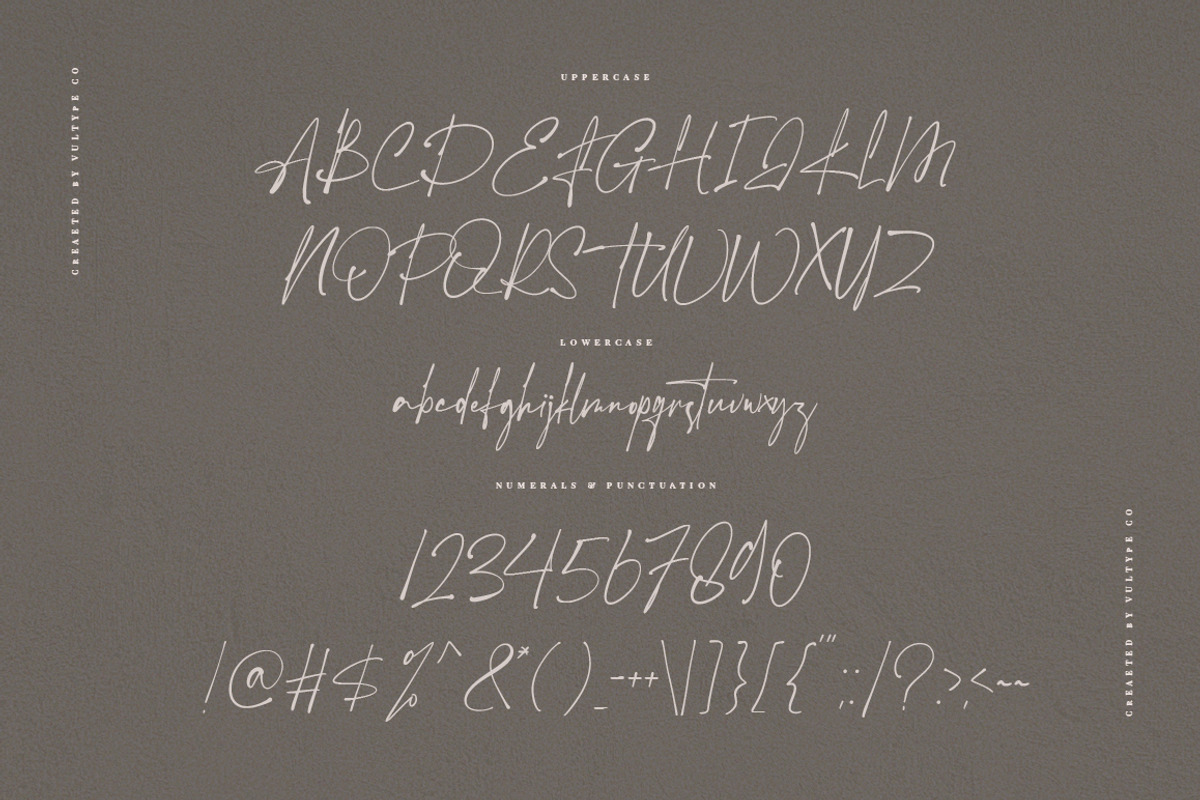 CREAETED BY VULTYPE CO
UPPERCASE
ABCDEFGHIJKLM
NOPQRSTUVWXYZ
LOWERCASE
abcdefghijklmnopqrstuvwxyz
NUMERALS & PUNCTUATION
1234567890
!@#$%^&*()_-++\|]}[{'":;./?.>,<~~
CREAETED BY VULTYPE CO